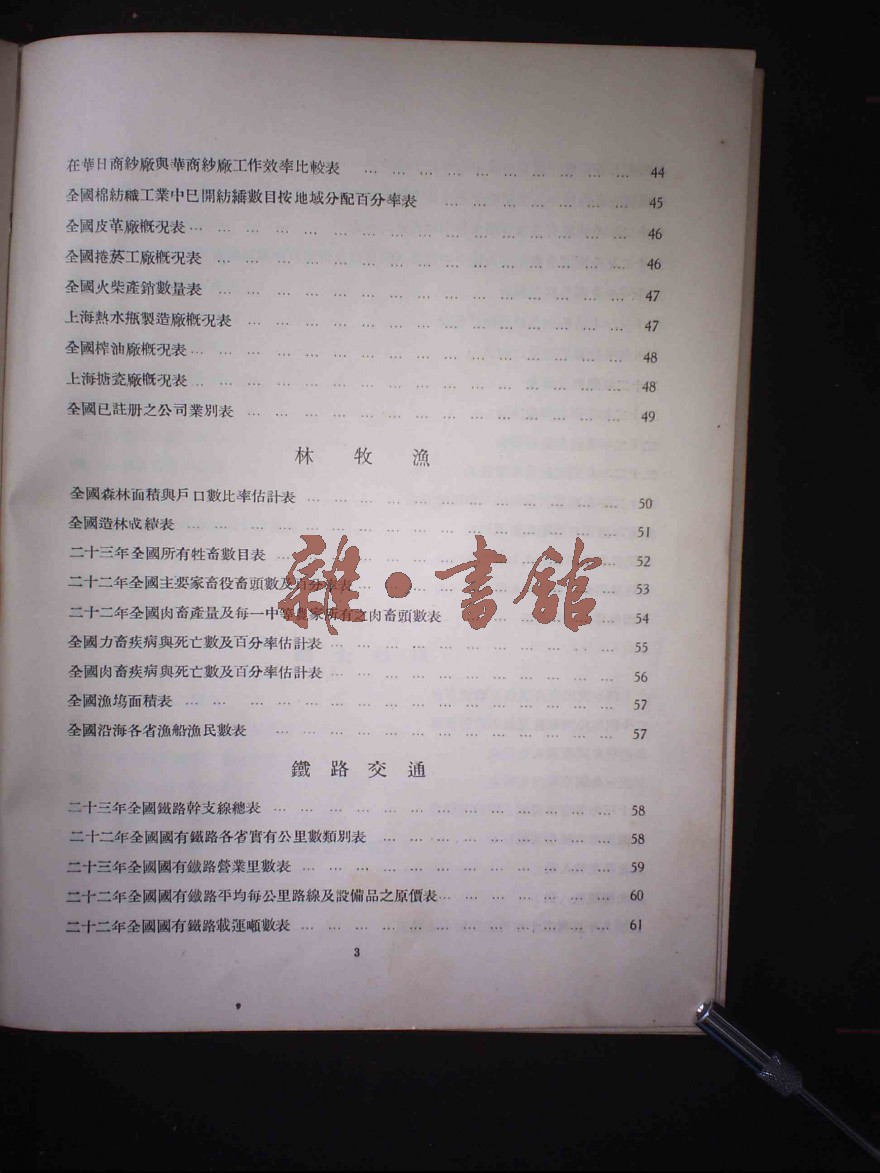 在華日商紗廠與華商紗廠工作效率比較表 … … … … … … … … … … 44
全國棉紡織工業中已開紡繙數目按地域分配百分率表 … … … … … … … 45
全國皮革廠概况表… … … … … … … … … … … … … … … … 46
全國捲菸工廠概况表 … … … … … … … … … … … … … … … 46
全國火柴產銷數量表 … … … … … … … … … … … … … … … 47
上海熱水瓶製造廠概况表 … … … … … … … … … … … … … … 47
全國榨油廠概况表… … … … … … … … … … … … … … … … 48
上海搪瓷廠概况表… … … … … … … … … … … … … … … … 48
全國已註册之公司業別表 … … … … … … … … … … … … … … 49
林牧漁
全國森林面積與戶口數比率估計表 … … … … … … … … … … … … 50
全國造林成績表 … … … … … … … … … … … … … … … … 51
二十三年全國所有牲畜數目表 … … … … … … … … … … … … … 52
二十二年全國主要家畜役畜頭數及百分率表… … … … … … … … … … 53
二十二年全國肉畜產量及每一中等農家所有之肉畜頭數表 … … … … … … 54
全國力畜疾病與死亡數及百分率估計表… … … … … … … … … … … 55
全國肉畜疾病與死亡數及百分率估計表… … … … … … … … … … … 56
全國漁塲面積表 … … … … … … … … … … … … … … … … 57
全國沿海各省漁船漁民數表 … … … … … … … … … … … … … 57
鐵路交通
二十三年全國鐵路幹支線總表 … … … … … … … … … … … … … 58
二十二年全國國有鐵路各省實有公里數類別表 … … … … … … … … … 58
二十三年全國國有鐵路營業里數表 … … … … … … … … … … … … 59
二十二年全國國有鐵路平均每公里路線及設備品之原價表… … … … … … … 60
二十二年全國國有鐵路載運噸數表 … … … … … … … … … … … … 61
3
雜·書館